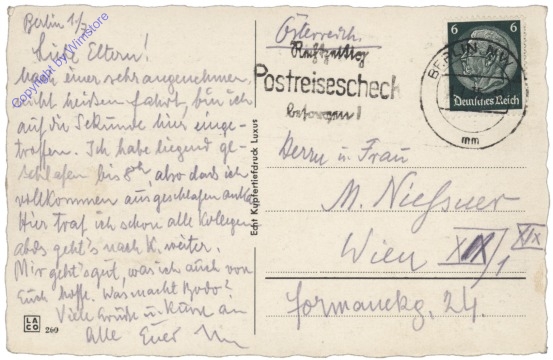 Berlin 1./7.
Liebe Eltern!
Nach einer sehr angenehmen,
nicht heißen Fahrt, bin ich
auf die Sekunde hier einge-
troffen. Ich habe liegend ge-
schlafen bis 8h, also daß ich
vollkommen ausgeschlafen
Hier traf ich schon alle Kollegen
abds geht's nach K. weiter.
Mir geht's gut, was ich auch von
Euch hoffe. Was macht Bodo?
Viele Grüße u. Küsse an
Alle Euer
LACO 260
Echt Kupfertiefdruck Luxus
Österreich.
Rechtzeitig
Postreisescheck
besorgen!
BERLIN NW
mm
6 6
Deutsches Reich
Herrn u. Frau
M. Niessner
Wien XIX/1
XIX
Formanekg. 24.
Copyright by WimStore